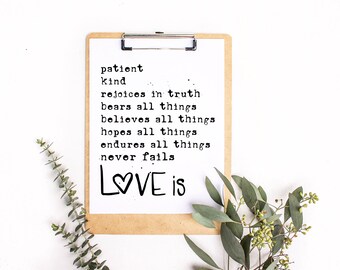 patient
kind
rejoices in truth
bears all things
believes all things
hopes all things
endures all things
never fails
LOVE is